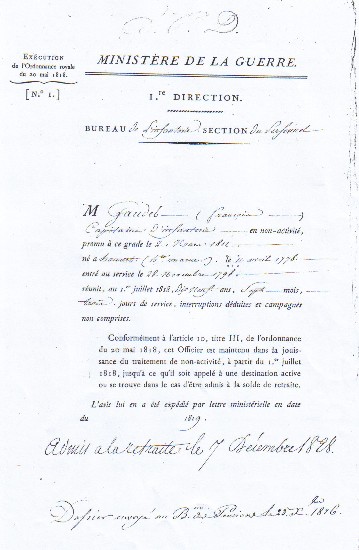 EXÉCUTION
de l'Ordonnance royale
du 20 mai 1818.
[N.° 1.]
MINISTÈRE DE LA GUERRE.
I.re DIRECTION.
BUREAU de l'infanterie SECTION du Personnel
M (François)
Capitaine d'infanterie en non-activité,
promu à ce grade le 2 Mars
né à le avril 1778.
entré au service le 28 1798.
réunit, au 1.er juillet 1818, dix neuf ans, sept mois,
jours de service, interruptions déduites et campagnes
non comprises.
Conformément à l'article 10, titre III, de l'ordonnance
du 20 mai 1818, cet Officier est maintenu dans la jouis-
sance du traitement de non-activité, à partir du 1.er juillet
1818, jusqu'à ce qu'il soit appelé à une destination active
ou se trouve dans le cas d'être admis à la solde de retraite.
L'avis lui en a été expédié par lettre ministérielle en date
du 1819.
Admis a la retraite le 7 Décembre 1828.
Dossier envoyé au B. des Pensions le 25 X.